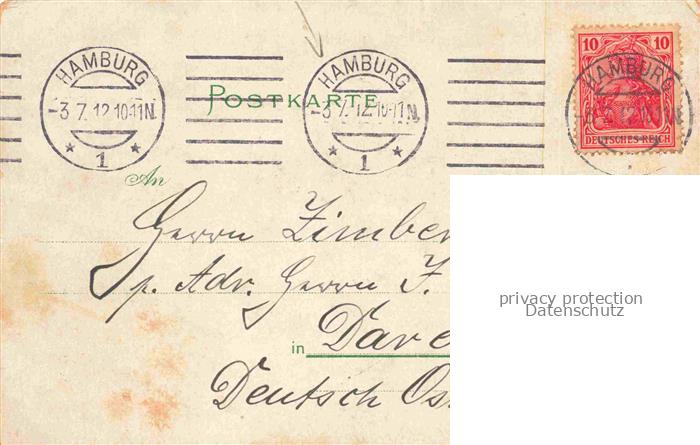 HAMBURG HAMBURG HAMBURG
10 10
POSTKARTE
-3.7.12.10-11N. -3.7.12.10-11N.
* 1 * * 1 *
DEUTSCHES REICH
An
Herrn
p. Adr. Herrn J.
privacy protection
Datenschutz
in
Deutsch